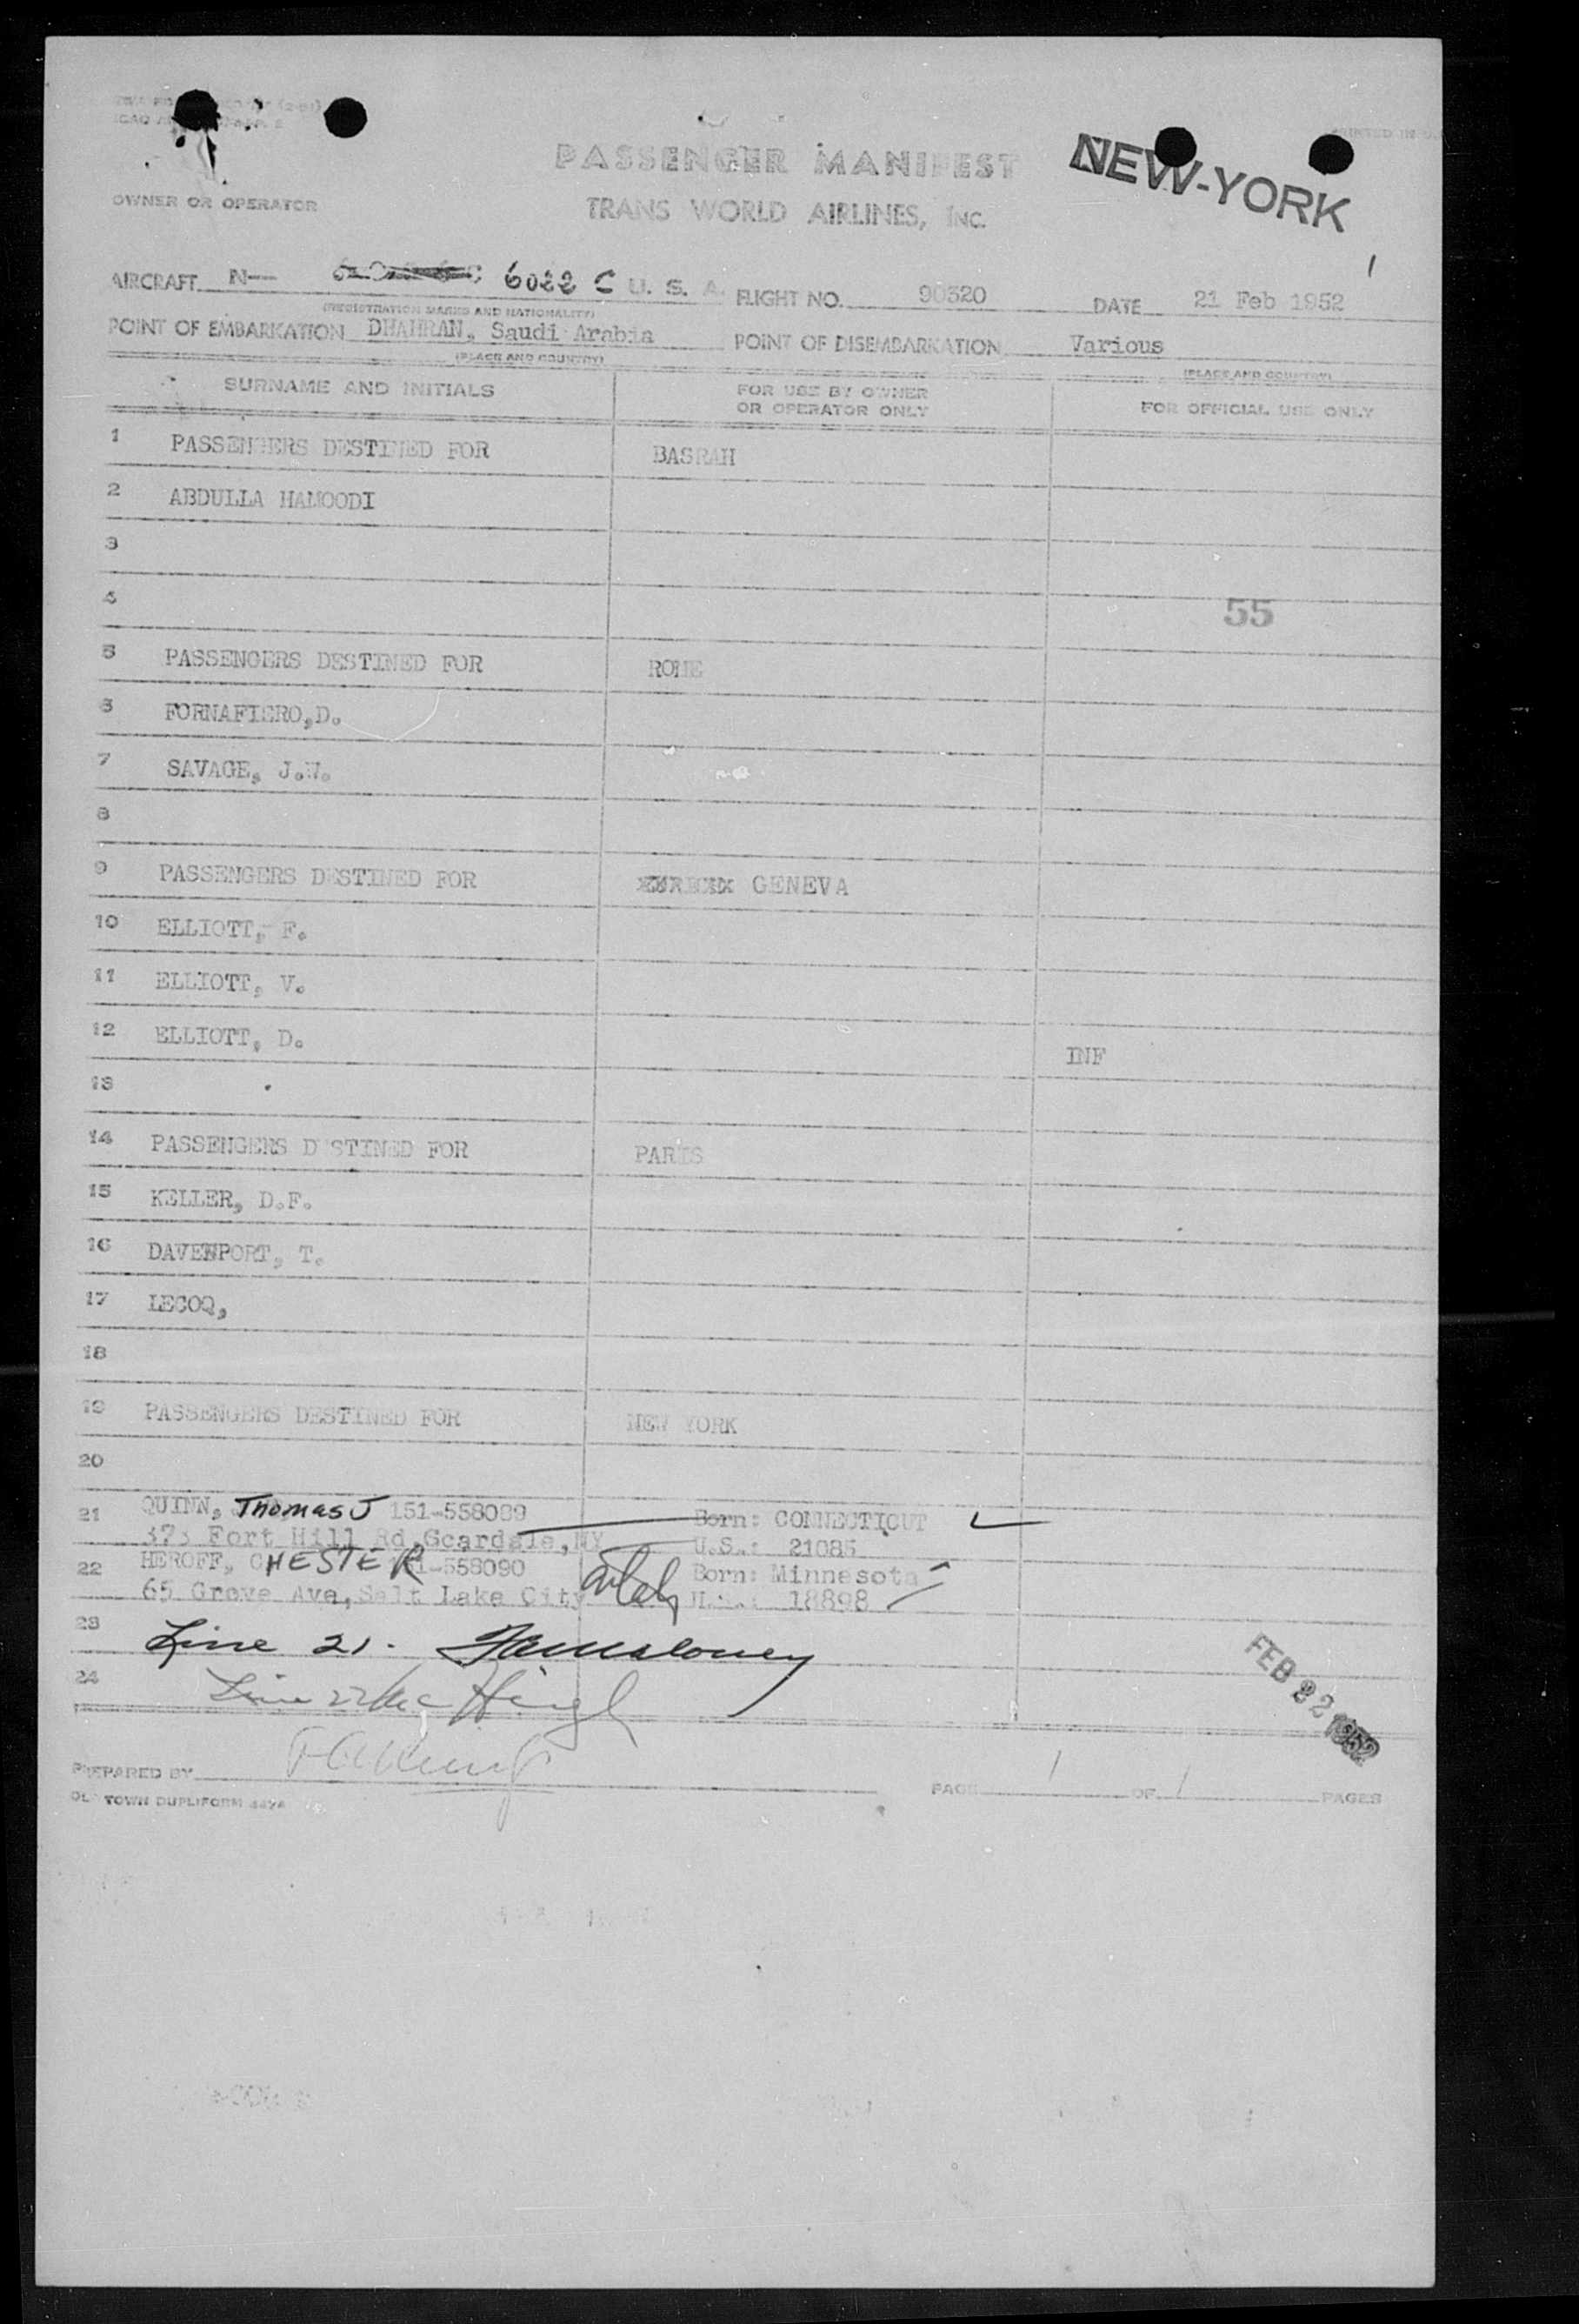 PASSENGER MANIFEST
NEW-YORK
OWNER OR OPERATOR
TRANS WORLD AIRLINES, INC.
1
AIRCRAFT N— 6022 C U. S. A. FLIGHT NO. 90320 DATE 21 Feb 1952
(REGISTRATION MARKS AND NATIONALITY)
POINT OF EMBARKATION DHAHRAN, Saudi Arabia POINT OF DISEMBARKATION Various
(PLACE AND COUNTRY) (PLACE AND COUNTRY)
SURNAME AND INITIALS FOR USE BY OWNER OR OPERATOR ONLY FOR OFFICIAL USE ONLY
1 PASSENGERS DESTINED FOR BASRAH
2 ABDULLA HAMOODI
3
4
55
5 PASSENGERS DESTINED FOR ROME
6 FORNAFIERO,D.
7 SAVAGE, J.W.
8
9 PASSENGERS DESTINED FOR GENEVA
10 ELLIOTT, F.
11 ELLIOTT, V.
12 ELLIOTT, D. INF
13
14 PASSENGERS DESTINED FOR PARIS
15 KELLER, D.F.
16 DAVENPORT, T.
17 LECOQ,
18
19 PASSENGERS DESTINED FOR NEW YORK
20
21 QUINN, Thomas J 151-558089 Born: CONNECTICUT
373 Fort Hill Rd,Scardale,NY U.S.: 21085
22 HEROFF, CHESTER -558090 Born: Minnesota
65 Grove Ave, Salt Lake City 18898
23 Line 21.
24 Line 22
FEB 22 1952
PREPARED BY PAGE 1 OF 1 PAGES
OLD TOWN DUPLIFORM